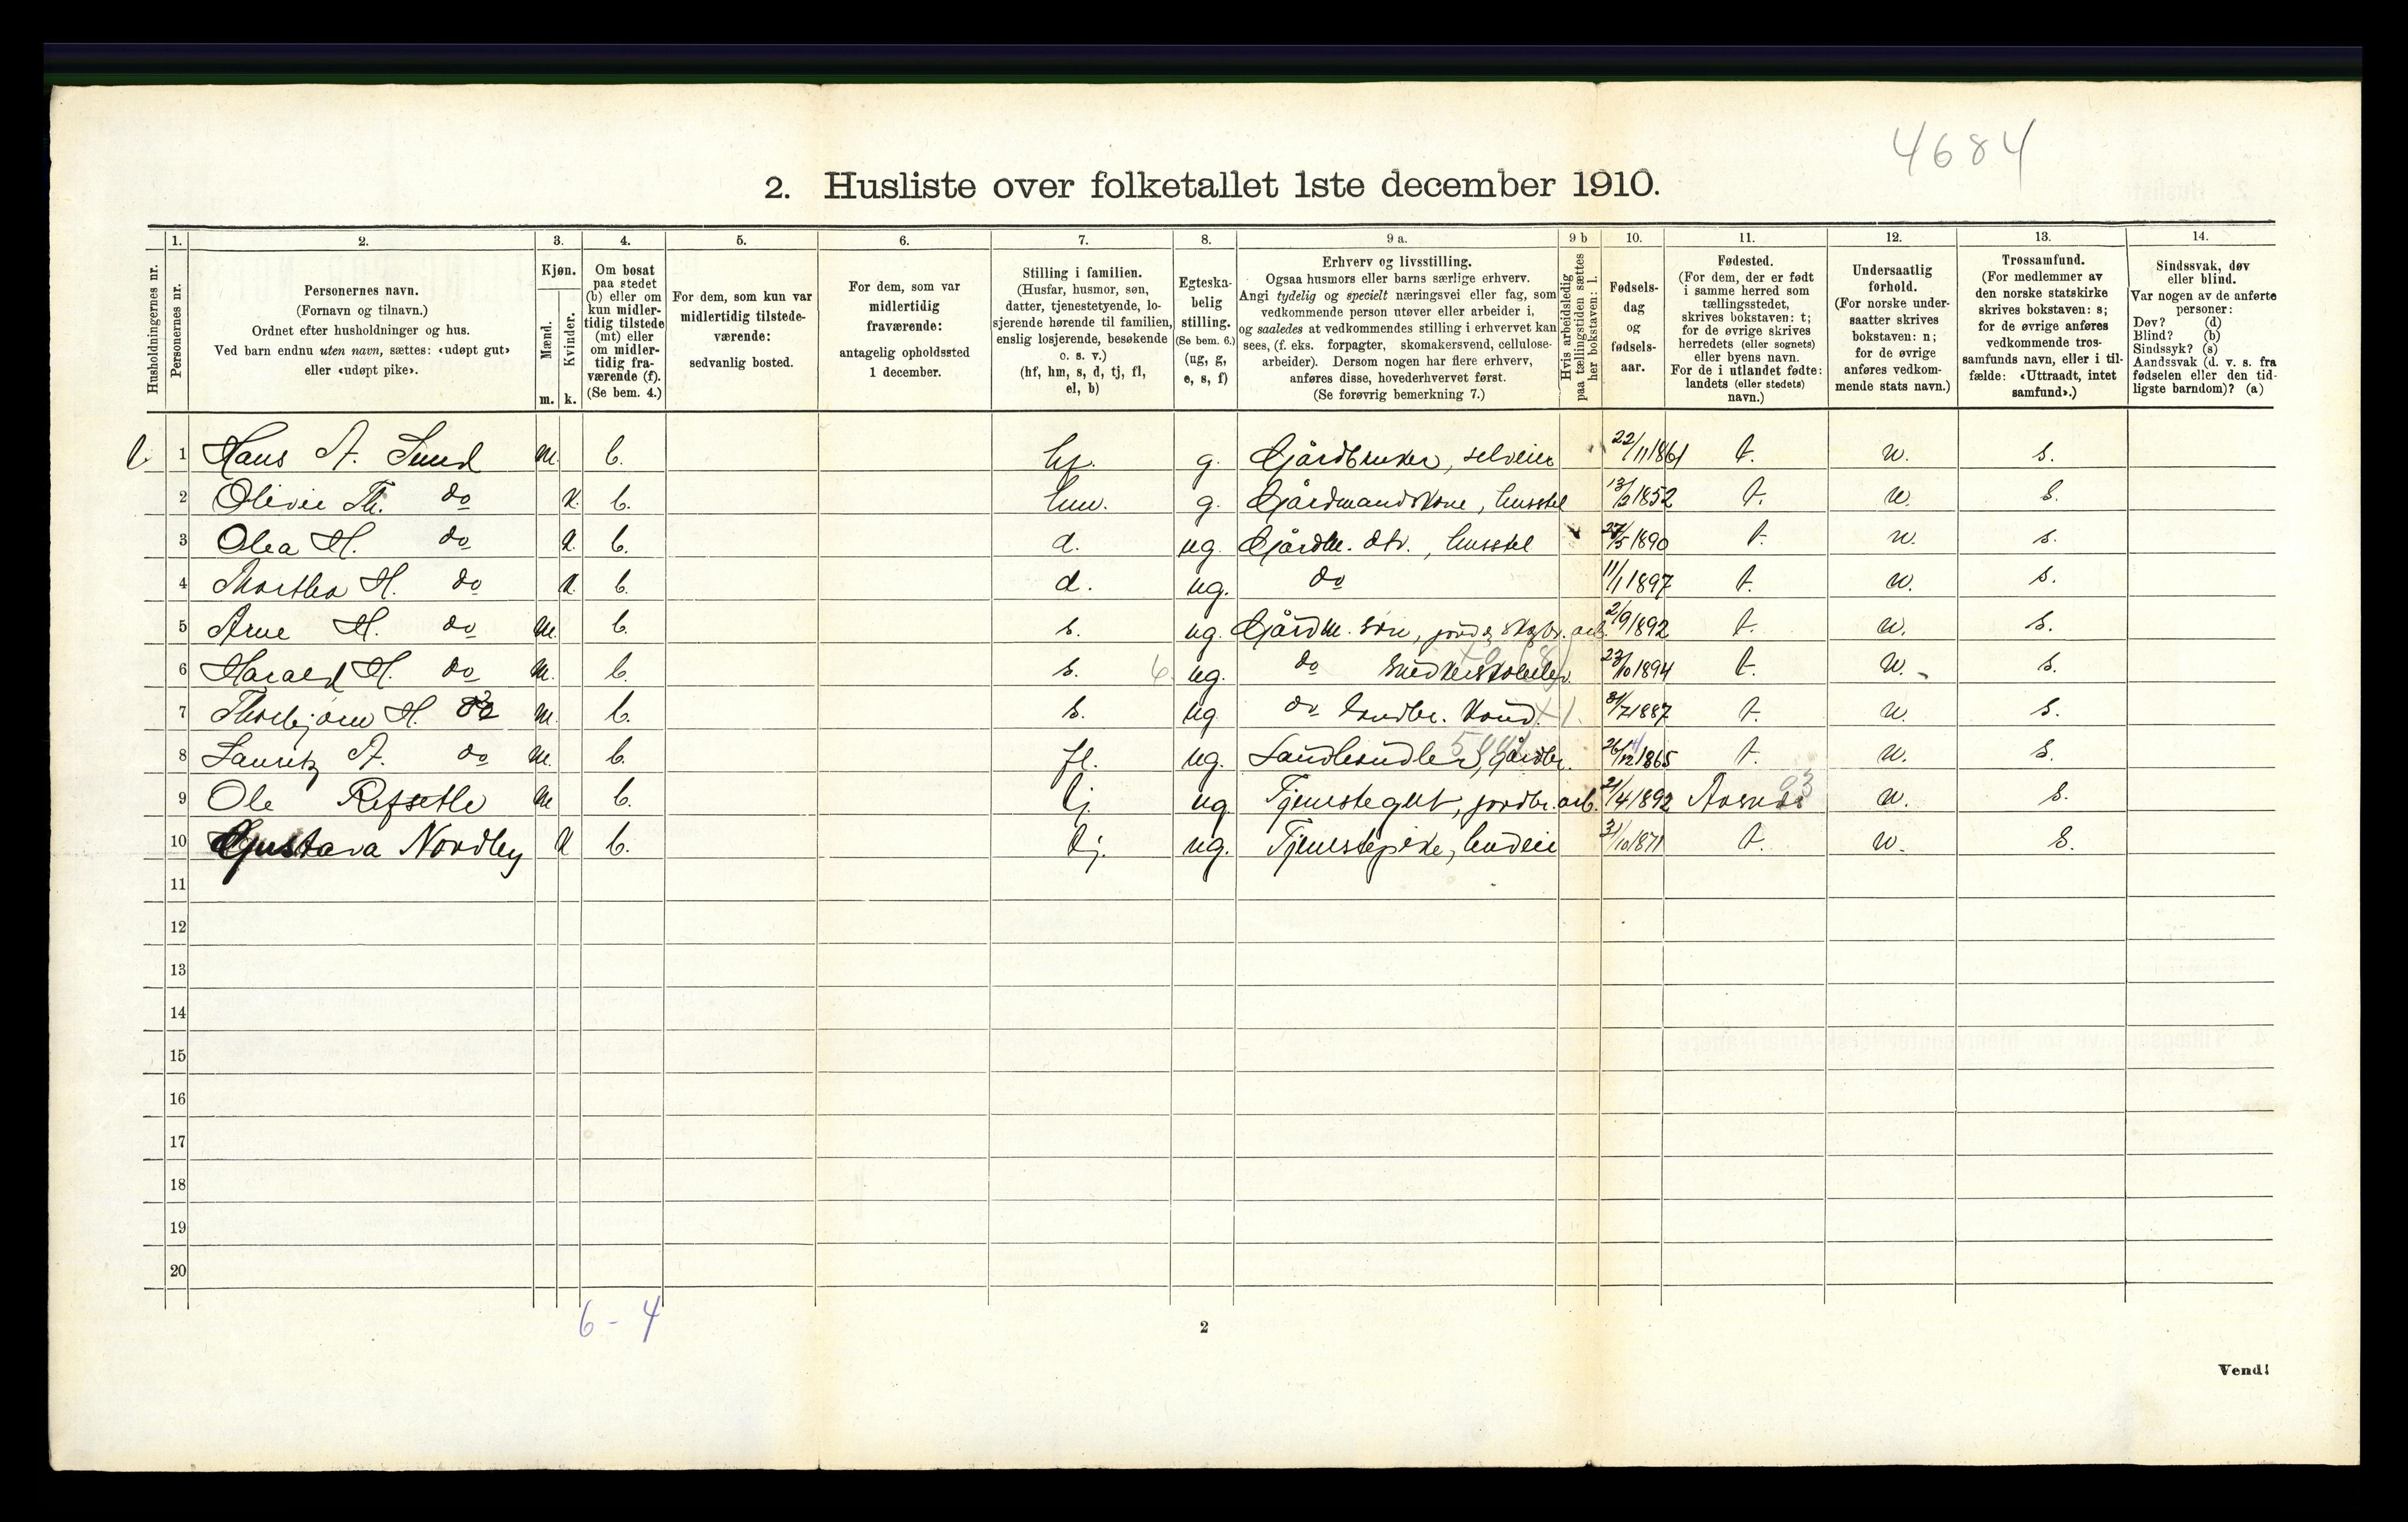 4684
2. Husliste over folketallet 1ste december 1910.
Husholdningernes nr.
1. Personernes nr.
2. Personernes navn.
(Fornavn og tilnavn.)
Ordnet efter husholdninger og hus.
Ved barn endnu uten navn, sættes: «udøpt gut»
eller «udøpt pike».
3. Kjøn.
Mænd. m.
Kvinder. k.
4. Om bosat
paa stedet
(b) eller om
kun midler-
tidig tilstede
(mt) eller
om midler-
tidig fra-
værende (f).
(Se bem. 4.)
5. For dem, som kun var
midlertidig tilstede-
værende:
sedvanlig bosted.
6. For dem, som var
midlertidig
fraværende:
antagelig opholdssted
1 december.
7. Stilling i familien.
(Husfar, husmor, søn,
datter, tjenestetyende, lo-
sjerende hørende til familien,
enslig losjerende, besøkende
o. s. v.)
(hf, hm, s, d, tj, fl,
el, b)
8. Egteska-
belig
stilling.
(Se bem. 6.)
(ug, g,
e, s, f)
9 a. Erhverv og livsstilling.
Ogsaa husmors eller barns særlige erhverv.
Angi tydelig og specielt næringsvei eller fag, som
vedkommende person utøver eller arbeider i,
og saaledes at vedkommendes stilling i erhvervet kan
sees, (f. eks. forpagter, skomakersvend, cellulose-
arbeider). Dersom nogen har flere erhverv,
anføres disse, hovederhvervet først.
(Se forøvrig bemerkning 7.)
9 b Hvis arbeidsledig
paa tællingstiden sættes
her bokstaven: l.
10. Fødsels-
dag
og
fødsels-
aar.
11. Fødested.
(For dem, der er født
i samme herred som
tællingsstedet,
skrives bokstaven: t;
for de øvrige skrives
herredets (eller sognets)
eller byens navn.
For de i utlandet fødte:
landets (eller stedets)
navn.)
12. Undersaatlig
forhold.
(For norske under-
saatter skrives
bokstaven: n;
for de øvrige
anføres vedkom-
mende stats navn.)
13. Trossamfund.
(For medlemmer av
den norske statskirke
skrives bokstaven: s;
for de øvrige anføres
vedkommende tros-
samfunds navn, eller i til-
fælde: «Uttraadt, intet
samfund».)
14. Sindssvak, døv
eller blind.
Var nogen av de anførte
personer:
Døv? (d)
Blind? (b)
Sindssyk? (s)
Aandssvak (d. v. s. fra
fødselen eller den tid-
ligste barndom)? (a)
1 Hans A. Sund m. b. hf. g. Gjårdbruker, selveier 22/11 1861 t. n. s.
2 Olivie Th. do k. b. hm. g. Gjårdmandskone, husstel 13/2 1852 t. n. s.
3 Olea H. do k. b. d. ug. Gjårdm. dtr., husstel 27/5 1890 t. n. s.
4 Marthea H. do k. b. d. ug. do 11/1 1897 t. n. s.
5 Arne H. do m. b. s. ug. Gjårdm. søn, jord & skogbr. arb. 2/9 1892 t. n. s.
6 Harald H. do m. b. s. ug. do Snedkerskoleelev. 23/10 1894 t. n. s.
7 Thorbjørn H. do m. b. s. ug do Landbr. kand. 31/7 1887 t. n. s.
8 Lauritz A. do m. b. fl. ug. Landhandler, Gårdbr. 26/12 1865 t. n. s.
9 Ole Refsetle m b. tj. ug. Tjenstegut, jordbr. arb. 21/4 1892 Aasnes 03 n. s.
10 Gustava Nordby k b. tj. ug. Tjenstepike, budeie 31/10 1871 t. n. s.
11
12
13
14
15
16
17
18
19
20
6 - 4
2
Vend!